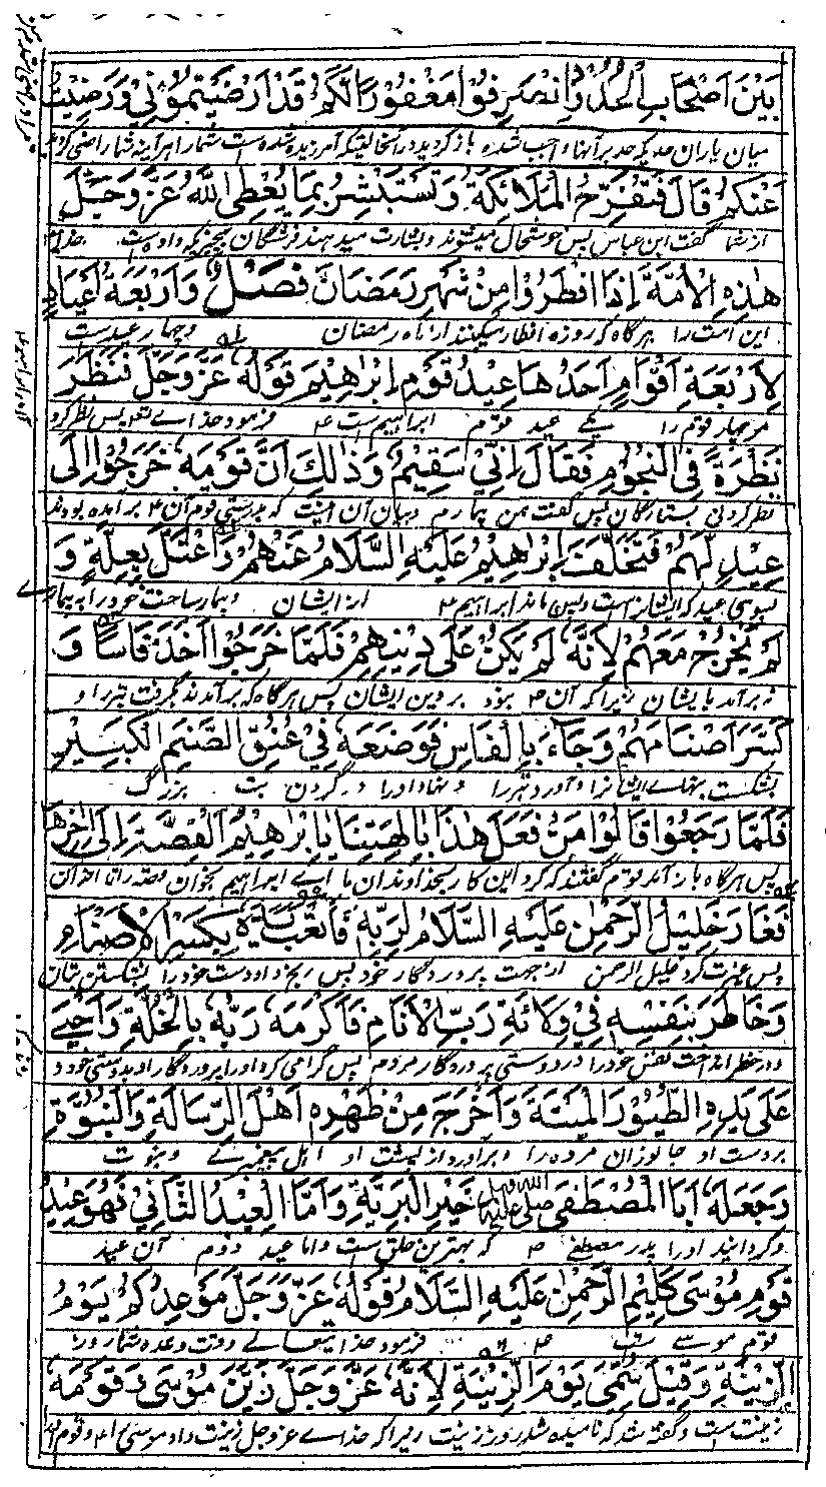 بَيْنَ اَصْحَابِ الْحُدُوْدِ اِنْصَرِفُوْا مَغْفُوْرًا لَّكُمْ قَدْ اَرْضَيْتُمُوْنِيْ وَرَضِيْتُ
میان یاران باز گردید در آنحالیکه آمرزیده شده است شمارا
عَنْكُمْ قَالَ فَتَفْرَحُ الْمَلَائِكَةُ وَتَسْتَبْشِرُ بِمَا يُعْطِي اللّٰهُ عَزَّ وَجَلَّ
از شما گفت ابن عباس پس خوشحال میشوند و بشارت میدهند فرشتگان بچیزیکه داده است
هٰذِهِ الْاُمَّةَ اِذَا اَفْطَرُوْا مِنْ شَهْرِ رَمَضَانَ فَصْلٌ وَاَرْبَعَةُ اَعْيَادٍ
این امت را هر گاه که روزه افطار میکنند از ماه رمضان و چهار عید است
لِاَرْبَعَةِ اَقْوَامٍ اَحَدُهَا عِيْدُ قَوْمِ اِبْرٰهِيْمَ قَوْلُهٗ عَزَّ وَجَلَّ فَنَظَرَ
مر چهار قوم را یکے عید قوم ابراهیم است ۴ فرمود خداے تعالی پس نظر کرد
نَظْرَةً فِي النُّجُوْمِ فَقَالَ اِنِّيْ سَقِيْمٌ وَذٰلِكَ اَنَّ قَوْمَهٗ خَرَجُوْا اِلٰى
نظر کردنی بستارگان پس گفت من بیمارم و بیان آن اینست که بدرستی قوم آن ۴ بر آمده بودند
عِيْدٍ لَّهُمْ فَتَخَلَّفَ اِبْرٰهِيْمُ عَلَيْهِ السَّلَامُ عَنْهُمْ وَاعْتَلَّ بِعِلَّةٍ وَ
بسوی عید که ایشانرا است و پس ماند ابراهیم ۴ از ایشان و بیمار ساخت خود را به بیماریے
لَمْ يَخْرُجْ مَعَهُمْ لِاَنَّهٗ لَمْ يَكُنْ عَلٰى دِيْنِهِمْ فَلَمَّا خَرَجُوْا اَخَذَ فَاْسًا وَ
نه برآمد با ایشان زیرا که آن ۴ نبود بر دین ایشان پس هر گاه که بر آمدند گرفت تبر را و
كَسَّرَ اَصْنَامَهُمْ وَجَاءَ بِالْفَاسِ فَوَضَعَهٗ فِيْ عُنُقِ الصَّنَمِ الْكَبِيْرِ
بشکست بتهاے ایشانرا و آورد تبر را و نهاد او را در گردن بت بزرگ
فَلَمَّا رَجَعُوْا قَالُوْا مَنْ فَعَلَ هٰذَا بِاٰلِهَتِنَا يَا اِبْرٰهِيْمُ الْقِصَّةَ اِلٰى اٰخِرِهَا
پس هر گاه باز آمد قوم گفتند که کرد این کار بخداوندان ما اے ابراهیم بخوان قصه را تا آخر آن
فَغَارَ خَلِيْلُ الرَّحْمٰنِ عَلَيْهِ السَّلَامُ لِرَبِّهٖ فَاَتْعَبَ يَدَهٗ بِكَسْرِ الْاَصْنَامِ
پس غیرت کرد خلیل الرحمن از جهت پروردگار خود پس رنج داد دست خود را بشکستن بتان
وَخَاطَرَ بِنَفْسِهٖ فِيْ وِلَائَةِ رَبِّ الْاَنَامِ فَاَكْرَمَهٗ رَبُّهٗ بِالْخُلَّةِ وَاَحْيٰے
و در خطر انداخت نفس خود را در دوستی پروردگار مردم پس گرامی کرد او را پروردگار او بدوستی خود و
عَلٰى يَدِهِ الطُّيُوْرَ الْمَيِّتَةَ وَاَخْرَجَ مِنْ ظَهْرِهٖ اَهْلَ الرِّسَالَةِ وَالنُّبُوَّةِ
بر دست او جانوران مرده را و برآورد از پشت او اهل پیغمبرے و نبوت
وَجَعَلَهٗ اَبَا الْمُصْطَفٰى صلى الله عليه وسلم خَيْرِ الْبَرِيَّةِ وَاَمَّا الْعِيْدُ الثَّانِيْ فَهُوَ عِيْدُ
و گردانید او را پدر مصطفے ۴ که بهترین خلق است و اما عید دوم آن عید
قَوْمِ مُوْسٰى كَلِيْمِ الرَّحْمٰنِ عَلَيْهِ السَّلَامُ قَوْلُهٗ عَزَّ وَجَلَّ مَوْعِدُكُمْ يَوْمُ
قوم موسے است ۴ فرمود خدا تعالے وقت وعده شما روز
الزِّيْنَةِ وَقِيْلَ سُمِّيَ يَوْمَ الزِّيْنَةِ لِاَنَّهٗ عَزَّ وَجَلَّ زَيَّنَ مُوْسٰى وَقَوْمَهٗ
زینت است و گفته شد که نامیده شد روز زینت زیرا که خداے عز و جل زینت داد موسی را ۴ و قوم او